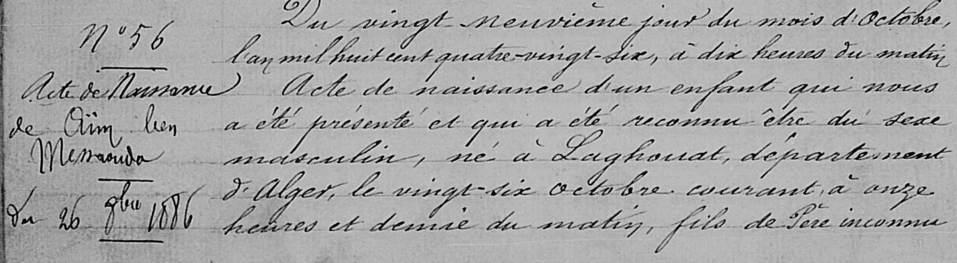 N° 56
Acte de Naissance
de Aïm ben
Messaouda
du 26 8bre 1886
Du vingt neuvième jour du mois d'Octobre,
l'an mil huit cent quatre-vingt-six, à dix heures du matin
Acte de naissance d'un enfant qui nous
a été présenté et qui a été reconnu être du sexe
masculin, né à Laghouat, département
d'Alger, le vingt-six octobre courant, à onze
heures et demie du matin, fils de Père inconnu